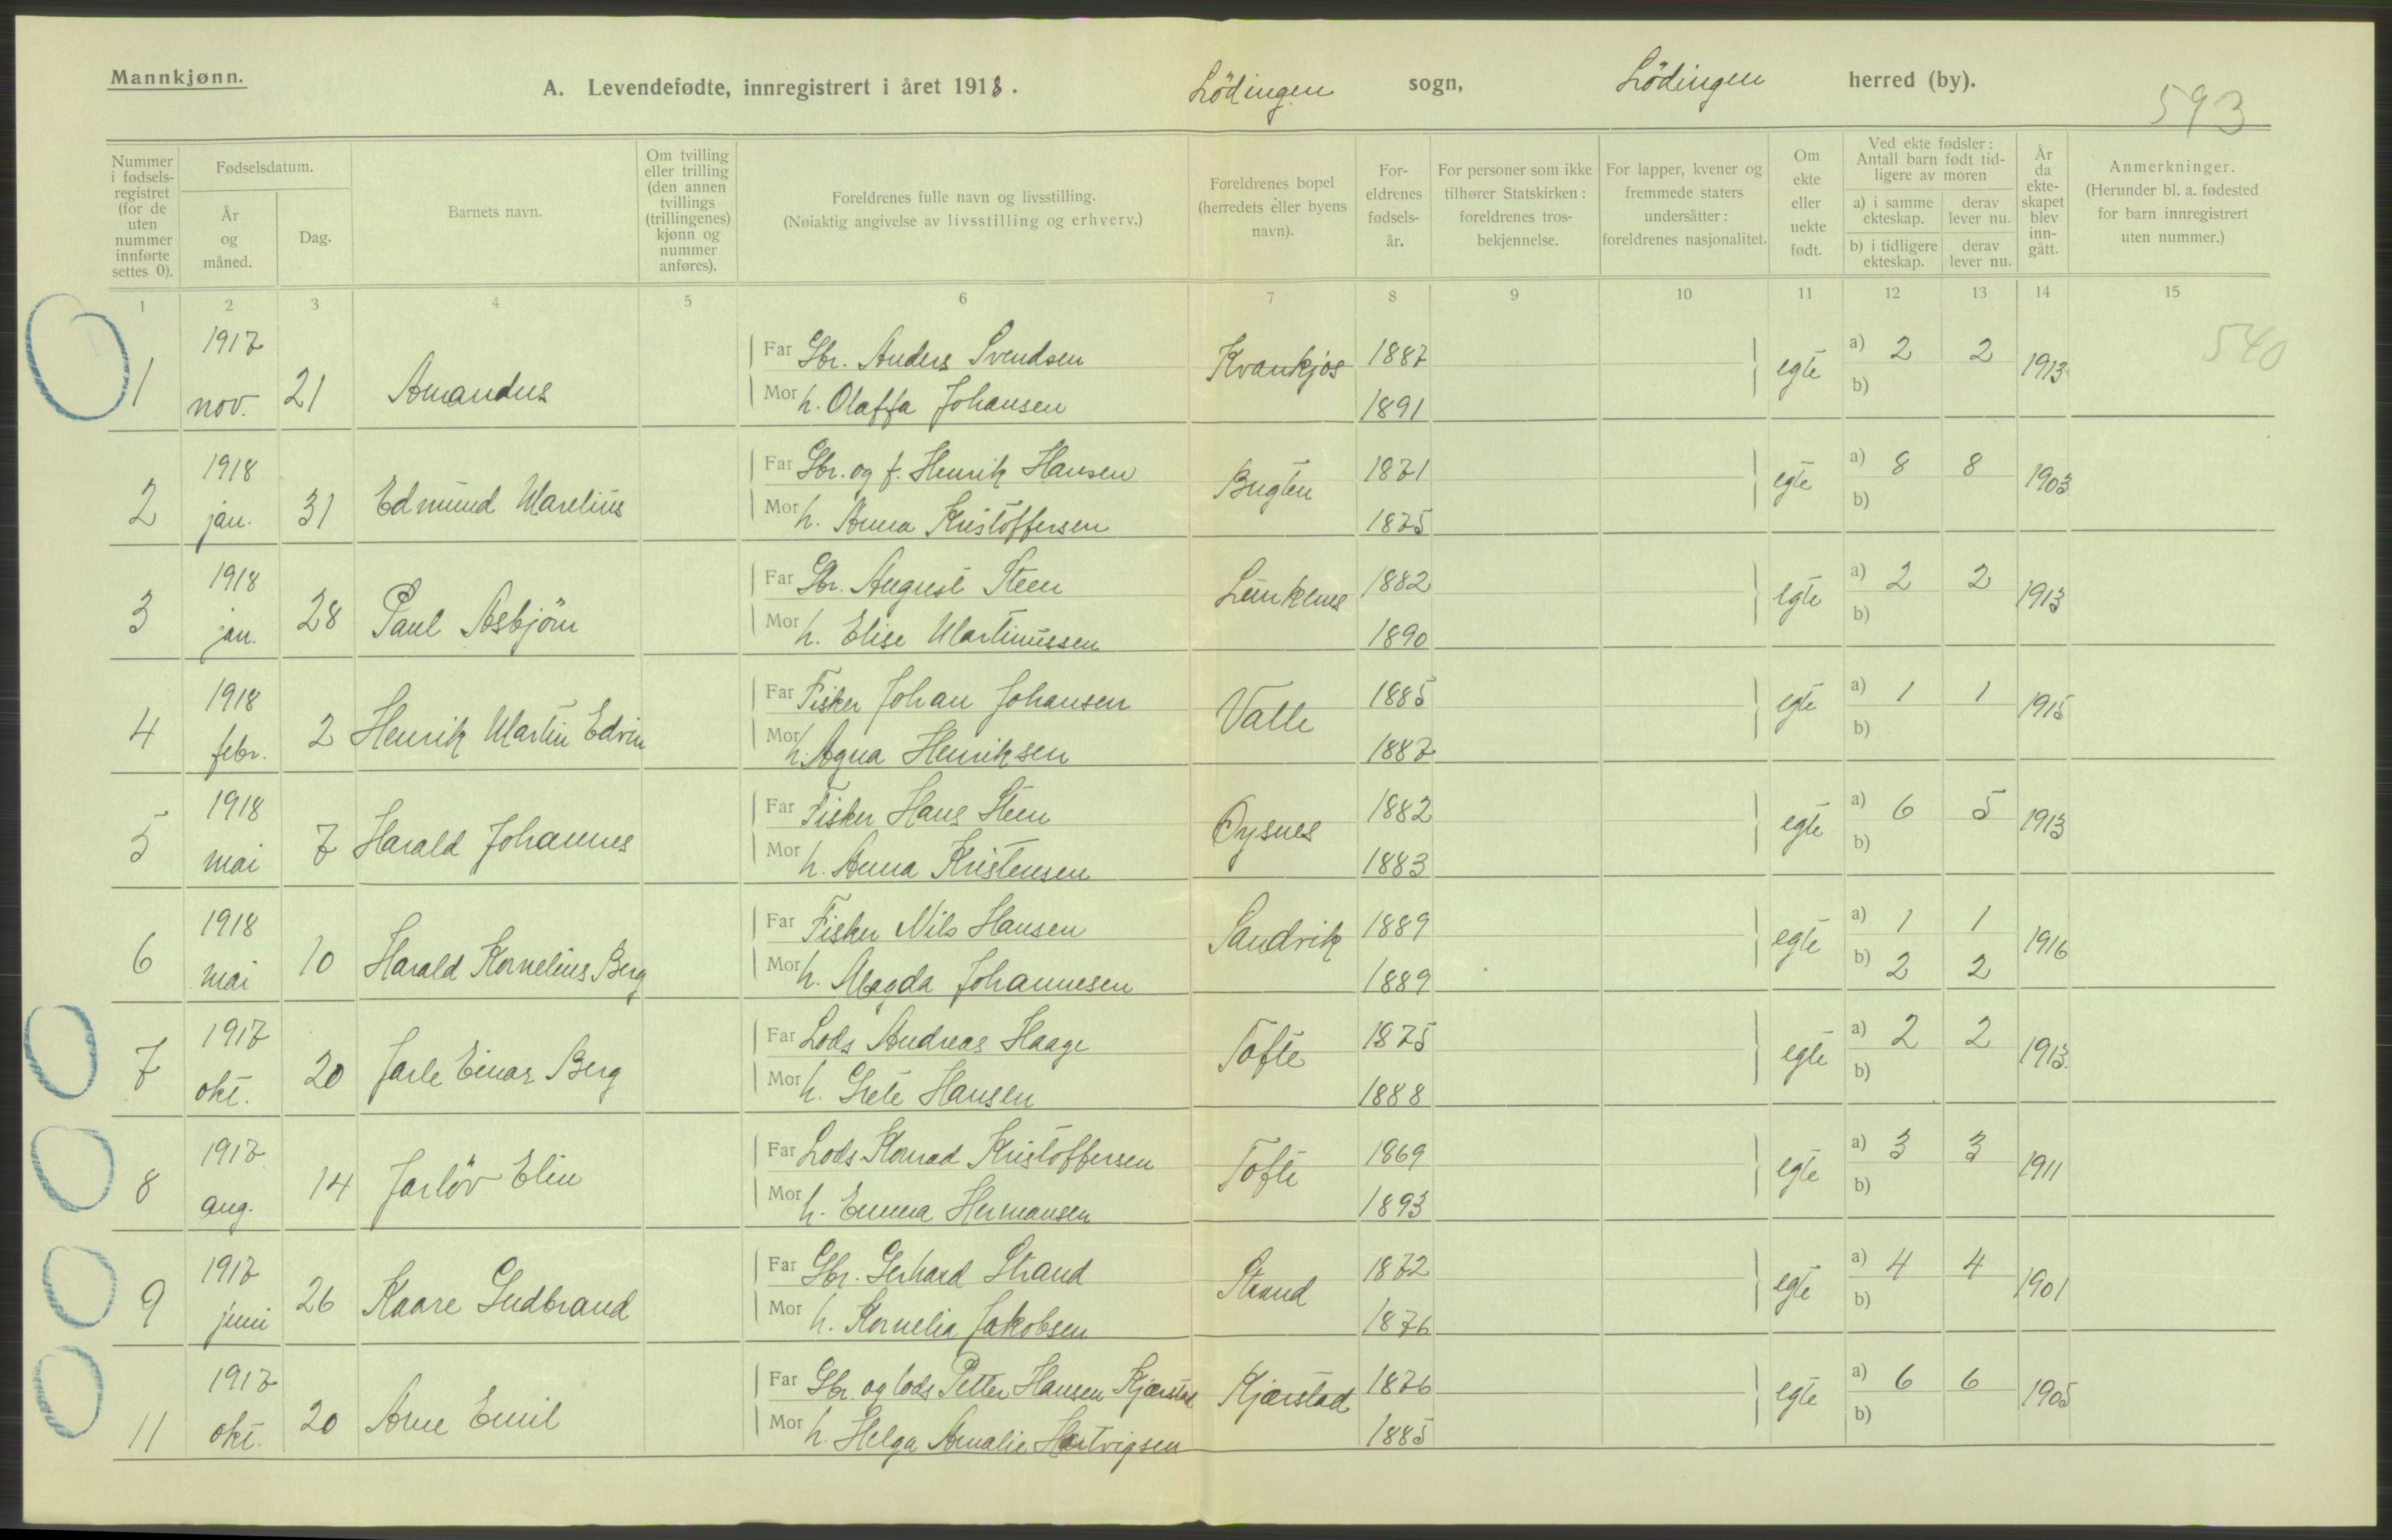 Mannkjønn.
A. Levendefødte, innregistrert i året 1918. Lödingen sogn, Lödingen herred (by).
593
Nummer i fødsels-registret (for de uten nummer innførte settes 0).
Fødselsdatum.
År og måned.
Dag.
Barnets navn.
Om tvilling eller trilling (den annen tvillings (trillingenes) kjønn og nummer anføres).
Foreldrenes fulle navn og livsstilling.
(Nøiaktig angivelse av livsstilling og erhverv.)
Foreldrenes bopel (herredets eller byens navn).
For-eldrenes fødsels-år.
For personer som ikke tilhører Statskirken: foreldrenes tros-bekjennelse.
For lapper, kvener og fremmede staters undersåtter: foreldrenes nasjonalitet.
Om ekte eller uekte født.
Ved ekte fødsler: Antall barn født tid-ligere av moren
a) i samme ekteskap.
derav lever nu.
b) i tidligere ekteskap.
derav lever nu.
År da ekte-skapet blev inn-gått.
Anmerkninger.
(Herunder bl. a. fødested for barn innregistrert uten nummer.)
1 2 3 4 5 6 7 8 9 10 11 12 13 14 15
540
1 1917 nov. 21 Amandus
Far Gbr. Anders Svendsen Kvankjos 1887 egte a) 2 2 1913
Mor h. Olaffa Johansen 1891 b)
2 1918 jan. 31 Edmund Marelius
Far Gbr. og f. Henrik Hansen Bugten 1871 egte a) 8 8 1903
Mor h. Anna Kristoffersen 1875 b)
3 1918 jan. 28 Paul Asbjörn
Far Gbr. August Steen 1882 egte a) 2 2 1913
Mor h. Elise Martinussen 1890 b)
4 1918 febr. 2 Henrik Martin Edvin
Far Fisker Johan Johansen Valle 1885 egte a) 1 1 1915
Mor h. Agna Henriksen 1887 b)
5 1918 mai 7 Harald Johannes
Far Fisker Hans Steen Öysnes 1882 egte a) 6 5 1913
Mor h. Anna Kristensen 1883 b)
6 1918 mai 10 Harald Kornelius Berg
Far Fisker Nils Hansen Sandvik 1889 egte a) 1 1 1916
Mor h. Magda Johannesen 1889 b) 2 2
7 1917 okt. 20 Jarle Einar Berg
Far Lods Andreas Haage Tofte 1875 egte a) 2 2 1913.
Mor h. Grete Hansen 1888 b)
8 1917 aug. 14 Jarlöv Elin
Far Lods Konrad Kristoffersen Tofte 1869 egte a) 3 3 1911
Mor h. Emma Hermansen 1893 b)
9 1917 juni 26 Kaare Gudbrand
Far Gbr. Gerhard Strand Strand 1872 egte a) 4 4 1901
Mor h. Kornelia Jakobsen 1876 b)
11 1917 okt. 20 Arne Emil
Far Gbr. og lods Petter Hansen Kjærstad Kjærstad 1876 egte a) 6 6 1905
Mor h. Helga Amalie Hartvigsen 1885 b)